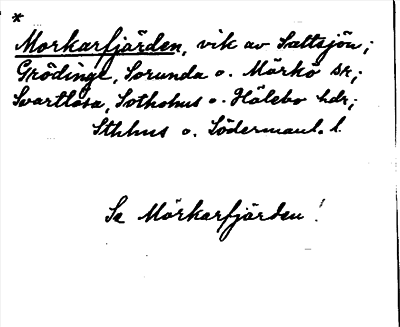 *
Morkarfjärden, vik av Saltsjön;
Grödinge, Sorunda o. Mörkö sk;
Svartlösa, Sotholms o. Hölebo hdr;
Sthlms o. Södermanl. l.
Se Mörkarfjärden!